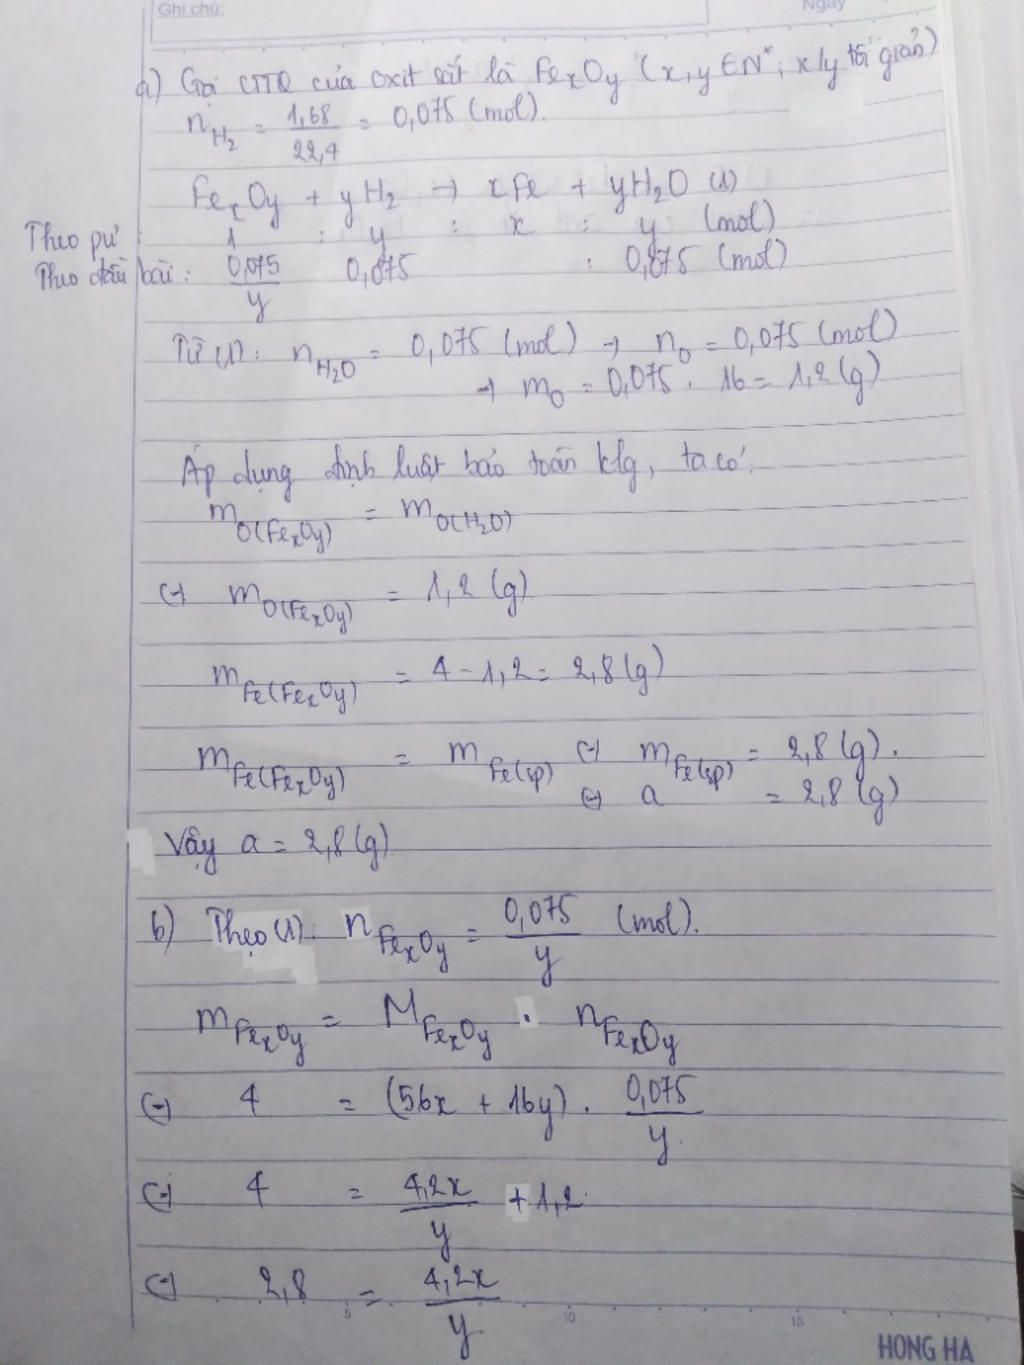 Ghi chú:
Ngày
a) Gọi CTTQ của oxit sắt là FexOy (x,y ∈ N*; x/y tối giản)
nH2 = 1,68/22,4 = 0,075 (mol).
FexOy + yH2 → xFe + yH2O (1)
Theo pư 1 : y : x : y (mol)
Theo đầu bài: 0,075/y 0,075 : 0,075 (mol)
Từ (1): nH2O = 0,075 (mol) → nO = 0,075 (mol)
→ mO = 0,075 . 16 = 1,2 (g)
Áp dụng định luật bảo toàn klg, ta có:
mO(FexOy) = mO(H2O)
(-) mO(FexOy) = 1,2 (g)
mFe(FexOy) = 4 - 1,2 = 2,8 (g)
mFe(FexOy) = mFe(sp) (-) mFe(sp) = 2,8 (g).
(-) a = 2,8 (g)
Vậy a = 2,8 (g)
b) Theo (1): nFexOy = 0,075/y (mol).
mFexOy = MFexOy . nFexOy
(-) 4 = (56x + 16y) . 0,075/y.
(-) 4 = 4,2x/y + 1,2
(-) 2,8 = 4,2x/y
5 10 15
HONG HA